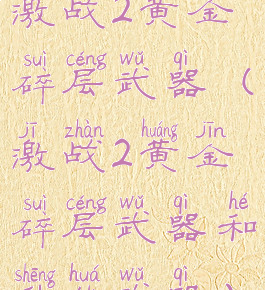 激战2黄金
suì céng wǔ qì
碎层武器(
jī zhàn huáng jīn
激战2黄金
suì céng wǔ qì hé
碎层武器和
shēng huá wǔ qì